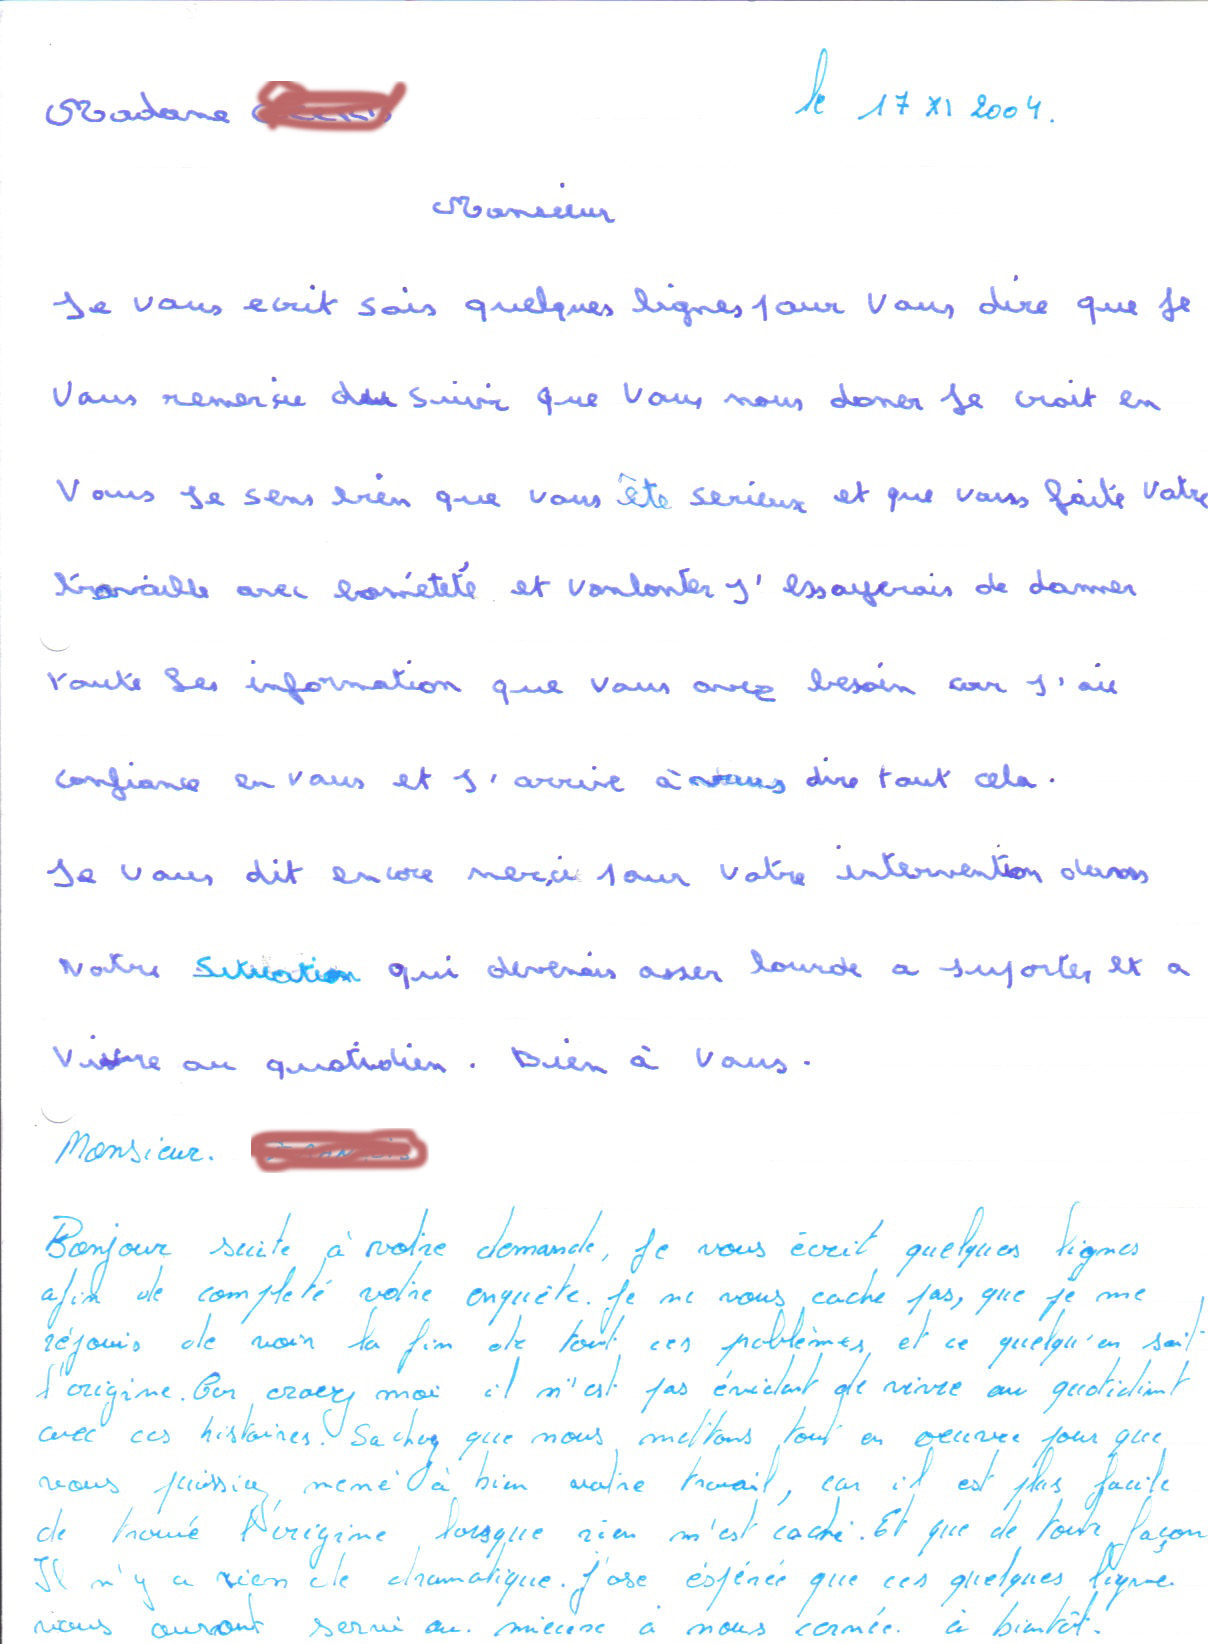 Madame
le 17 XI 2004.
Monsieur
Je vous ecrit sois quelques lignes pour vous dire que je
Vous remercie du suivie que vous nous doner Je croit en
Vous je sens bien que vous ête serieux et que vous faite votre
travaille avec et vonlonter J'essayerais de donner
toute les information que vous avez besoin car J'ai
confiance en vous et J'arrive à vous dire tout cela.
Je vous dit encore merci pour votre intervention dans
Notre situation qui devenais asser lourde a suporter et a
Vivre au quotidien. Bien à vous.
Monsieur.
Bonjour suite à votre demande, Je vous écrit quelques lignes
afin de completé votre enquête. Je ne vous cache pas, que je me
réjouis de voir la fin de tout ces problèmes et ce quelqu'en soit
l'origine. Car croyez moi il n'est pas évidant de vivre au quotidient
avec ces histoires. Sachez que nous mettons tout en oeuvre pour que
vous puissiez mené à bien votre travail, car il est plus facile
de trouvé l'origine lorsque rien n'est caché. Et que de toute façon
Il n'y a rien de dramatique. J'ose éspérée que ces quelques ligne
vous auront servi au mieux à nous cernée. à bientôt.